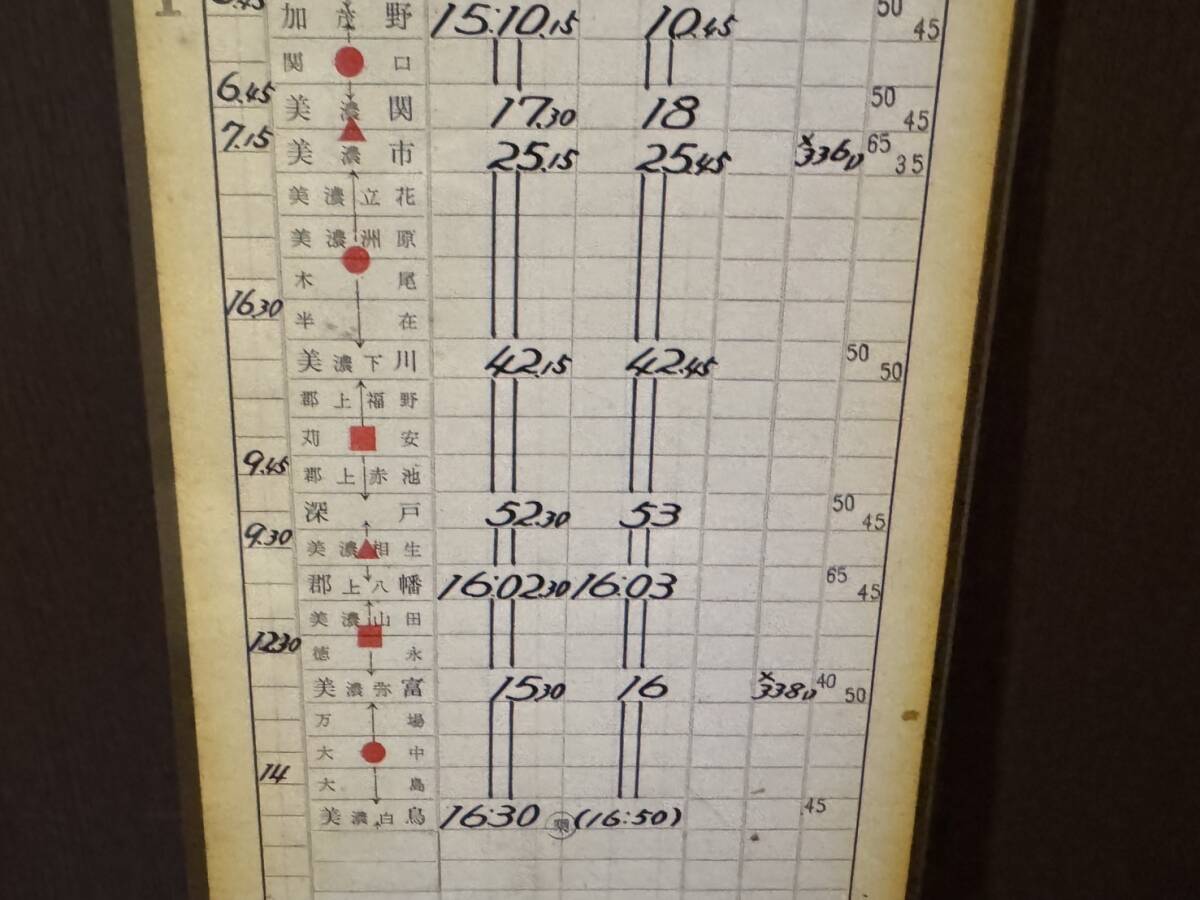 加茂野 15:10.15 10.45 50 45
関口
6.45 美濃関 17.30 18 50 45
7.15 美濃市 25.15 25.45 ×336D 65 35
美濃立花
美濃洲原
木尾
16.30 半在
美濃下川 42.15 42.45 50 50
郡上福野
苅安
9.45 郡上赤池
深戸 52.30 53 50 45
9.30 美濃相生
郡上八幡 16:02.30 16:03 65 45
美濃山田
12.30 徳永
美濃弥富 15.30 16 ×338D 40 50
万場
大中
14 大島
美濃白鳥 16:30 (16:50) 45